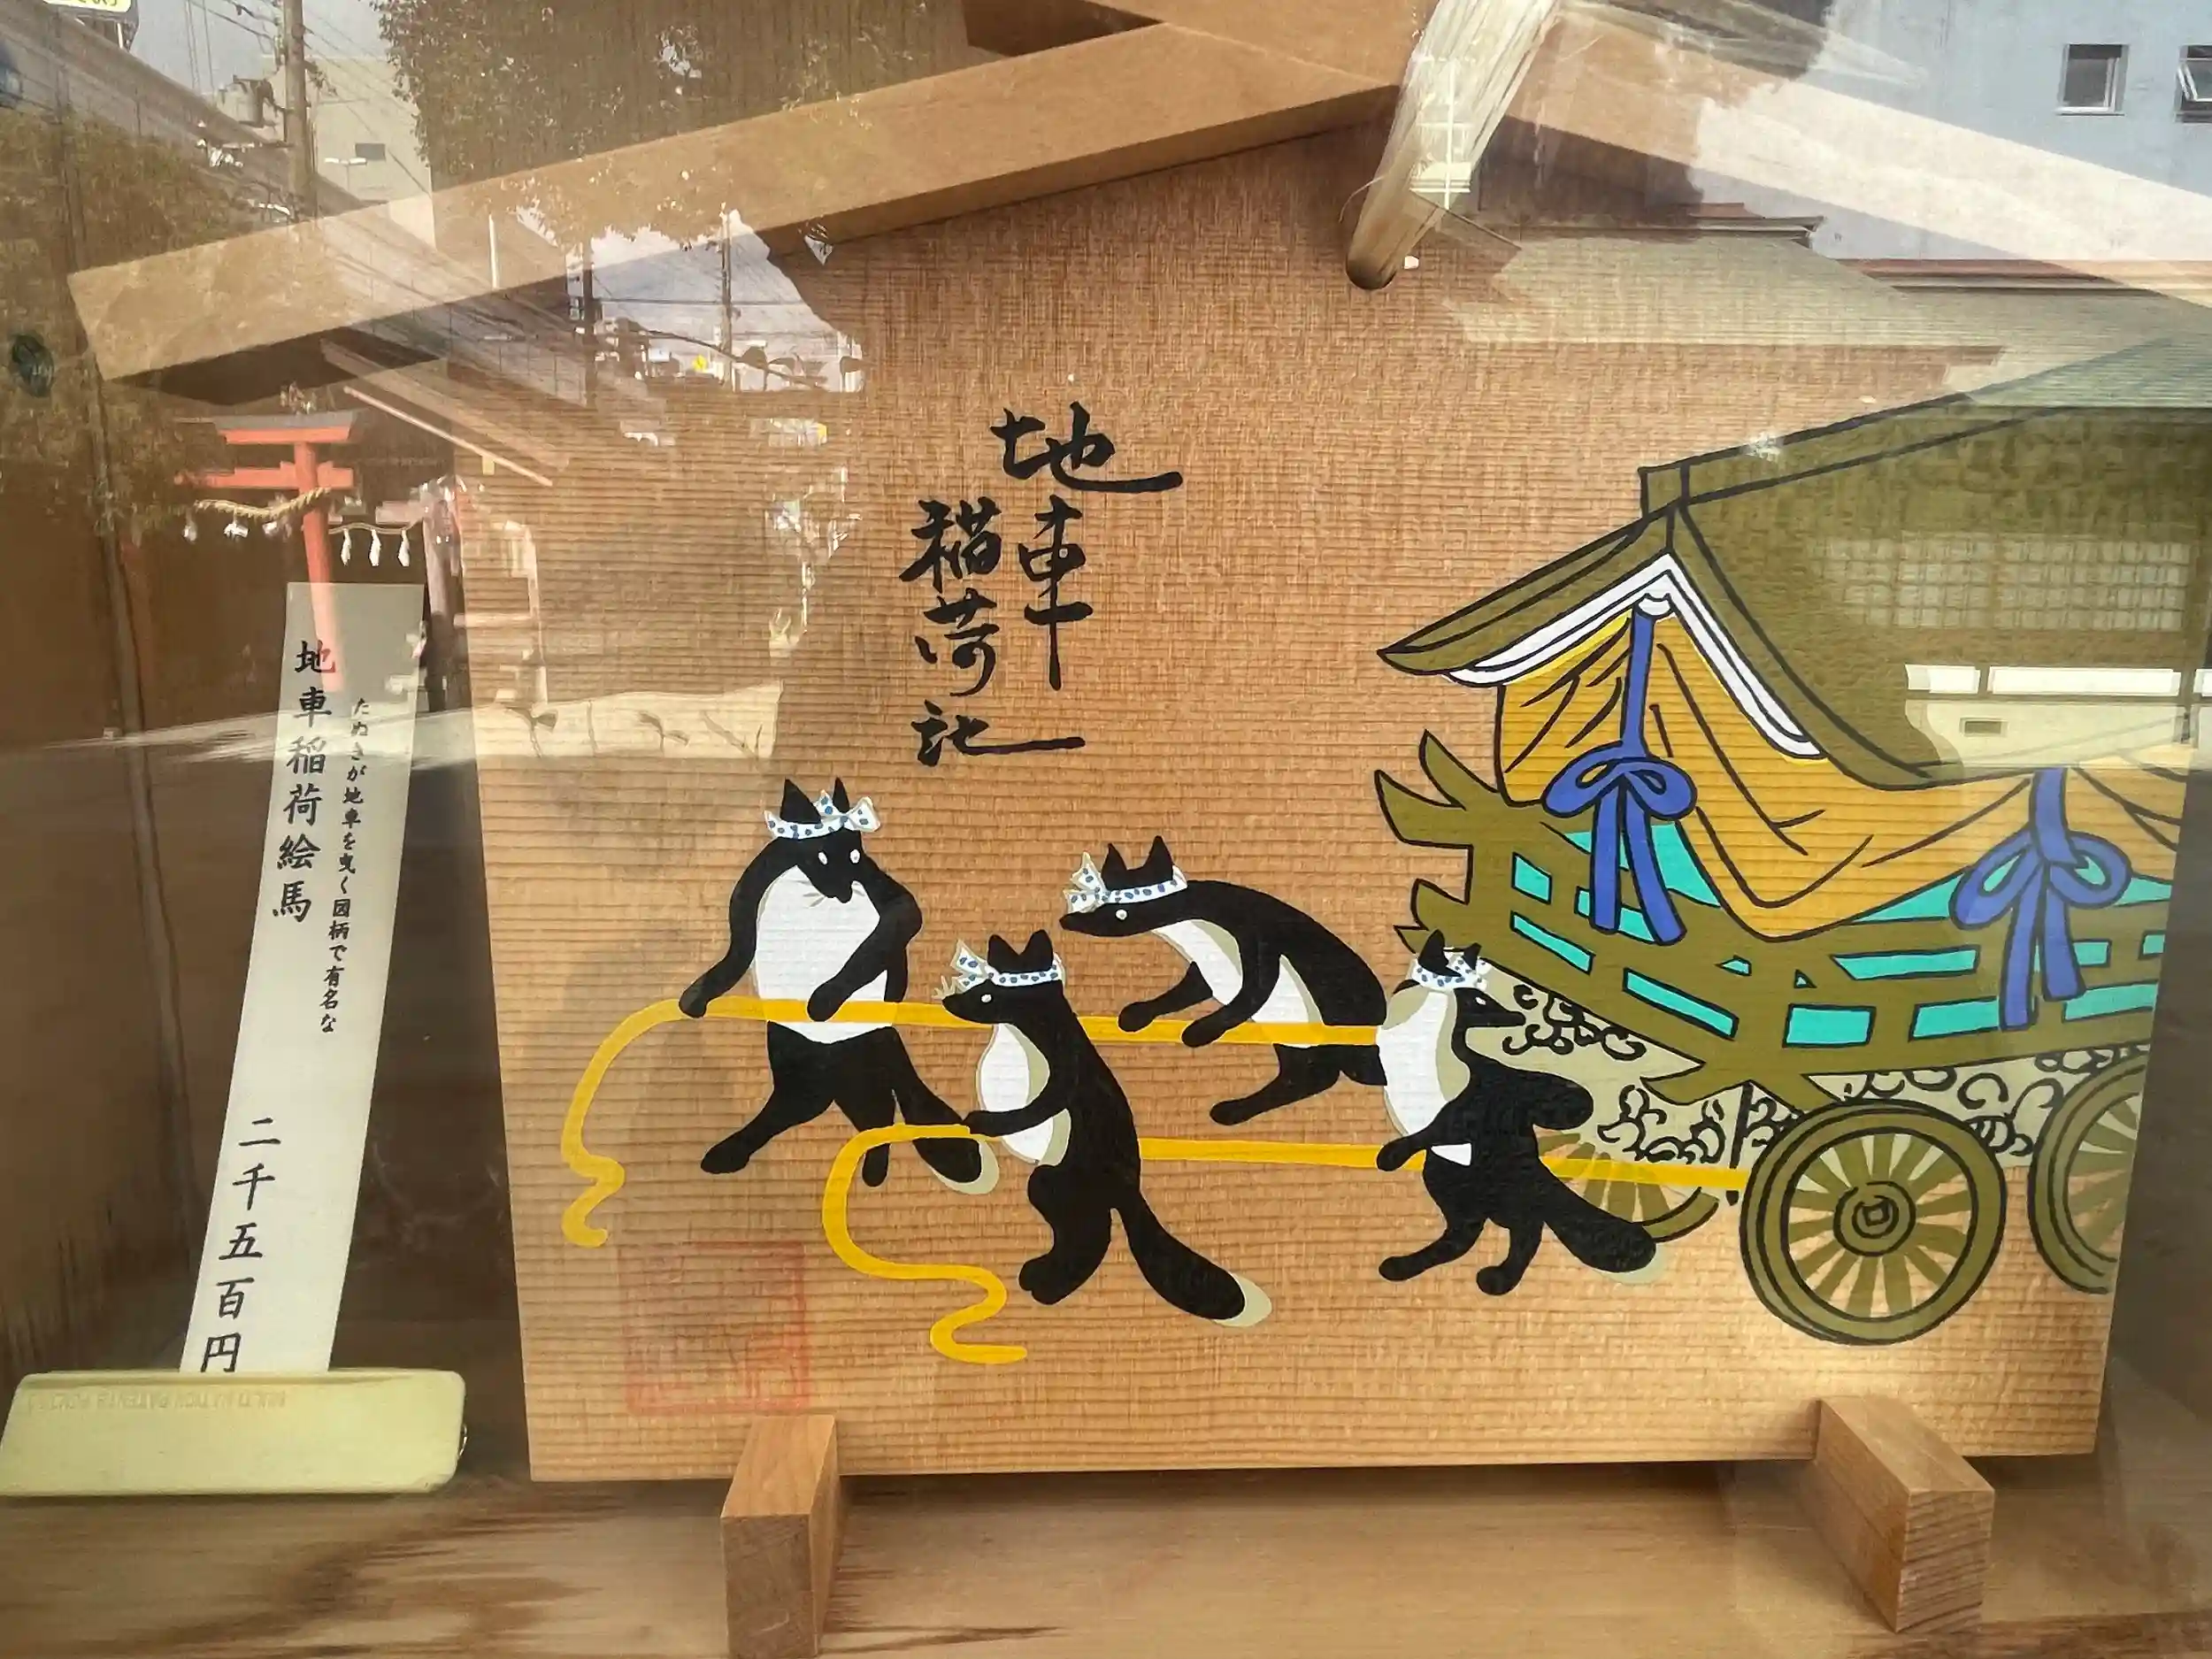 地車
稲荷社
たぬきが地車を曳く図柄で有名な
地車稲荷絵馬
二千五百円